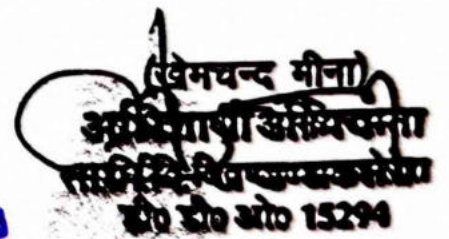 (खेमचन्द मीना)
अधिशाषी अभियन्ता
डी० डी० ओ० 15294